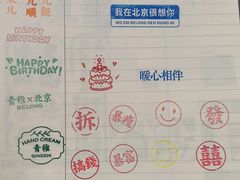 我在北京很想你
WO ZAI BEIJING HEN XIANG NI
HAPPY
BIRTHDAY
HAPPY
BIRTHDAY!
暖心相伴
青稚×北京
BEIJING
拆
發
HAND CREAM
青稚
QINGZHI
搞錢
暴富
囍